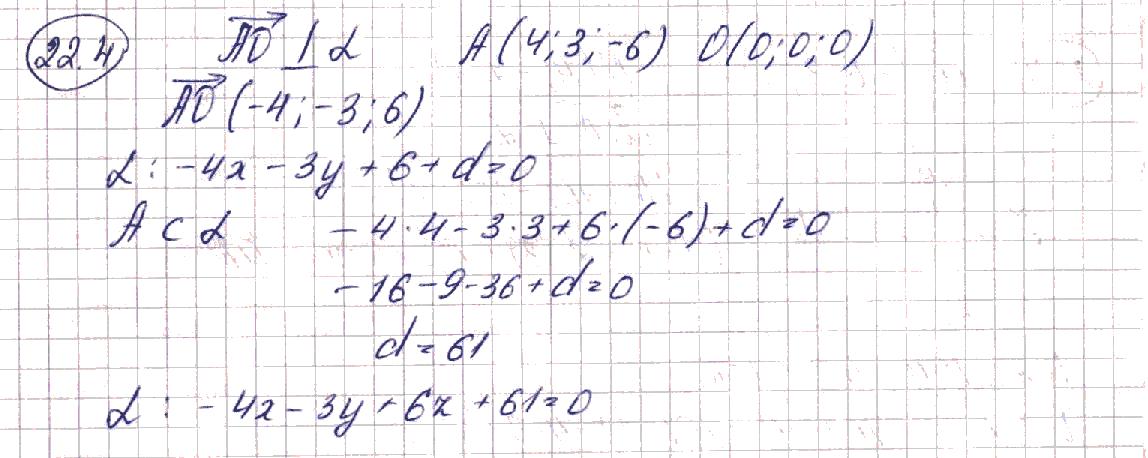 22.4 AO ⊥ α A(4;3;-6) O(0;0;0)
AO(-4;-3;6)
α: -4x - 3y + 6 + d = 0
A ⊂ α -4·4 - 3·3 + 6·(-6) + d = 0
-16 - 9 - 36 + d = 0
d = 61
α: -4x - 3y + 6z + 61 = 0